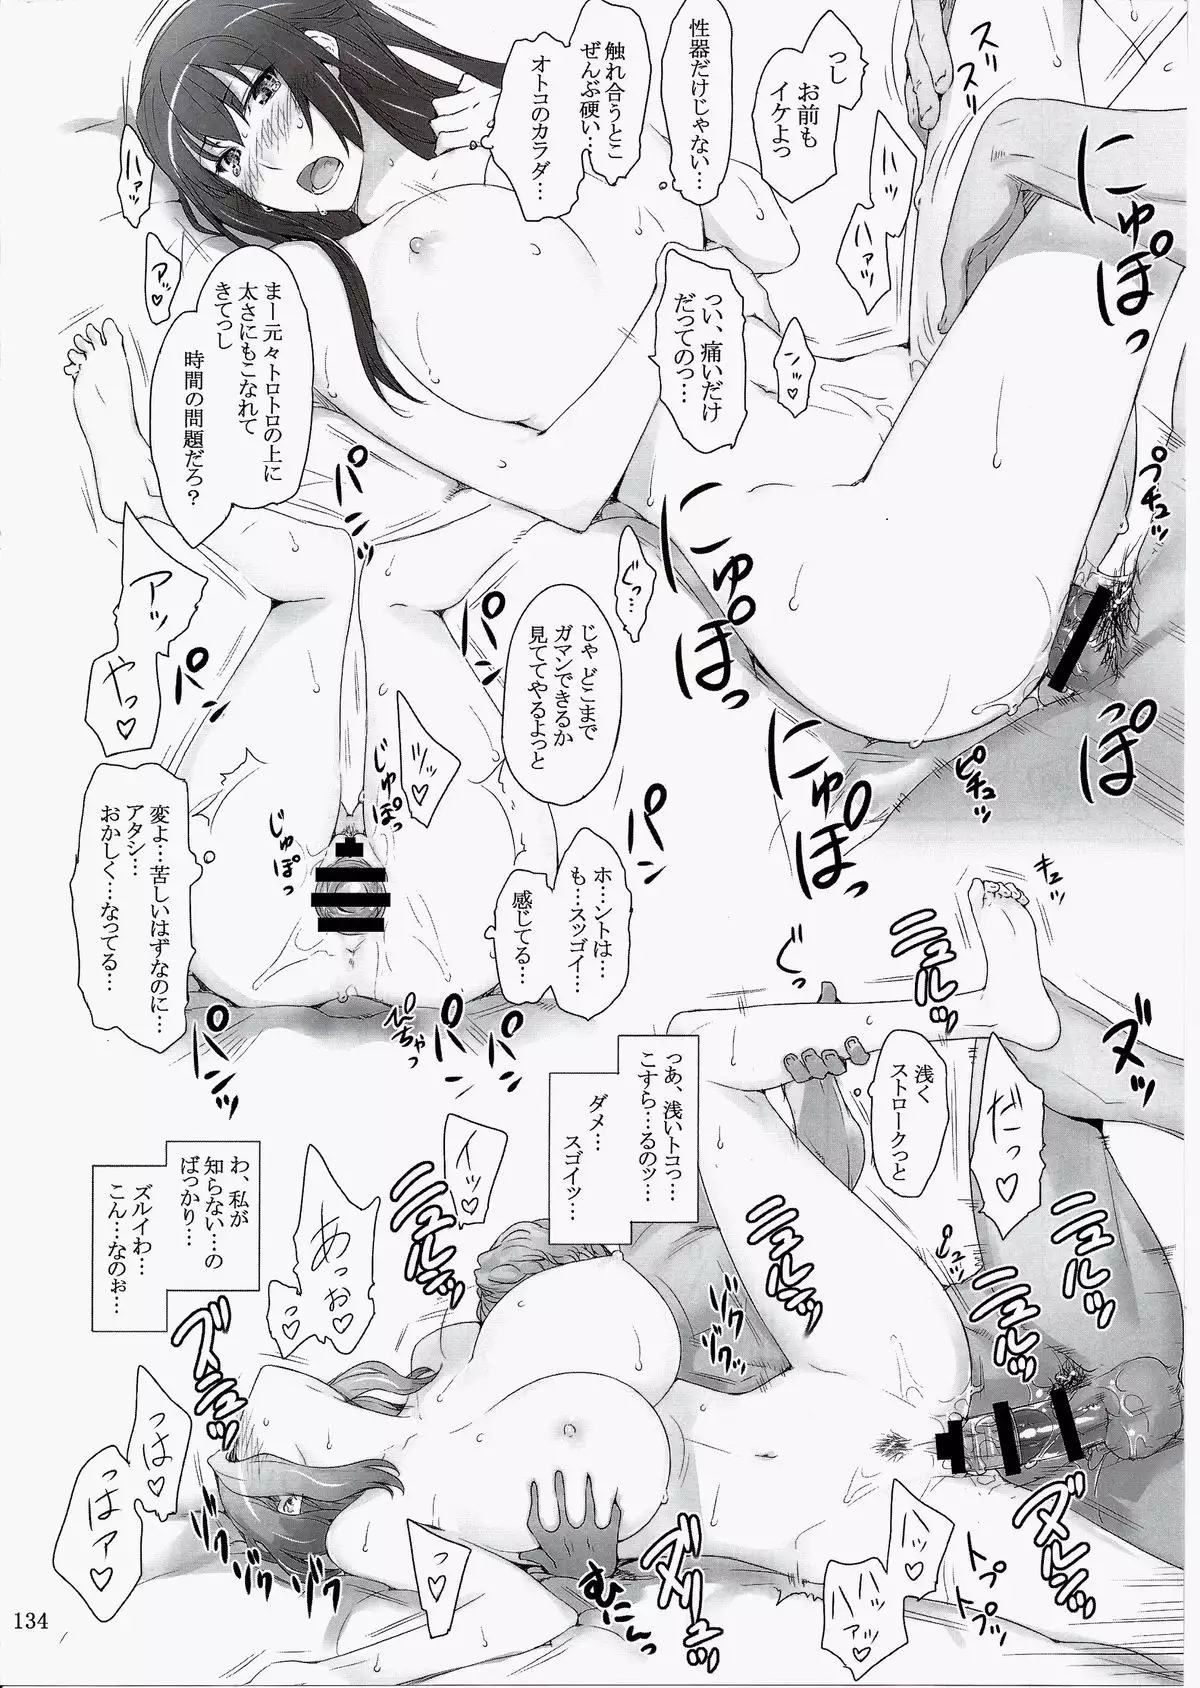 っし
お前も
イケよっ
性器だけじゃない…
触れ合うとこ
ぜんぶ硬い…
オトコのカラダ…
ススッ
スズッ
にゅぽっ
ハァッ
ハッ
ハァッ
アッ♥
つい、痛いだけ
だってのっ…
ンッ♥
まー元々トロトロの上に
太さにもこなれて
きてっし
時間の問題だろ？
プチュッ
にゅぽっ
パンッ
ぐっ…
じゃ どこまで
ガマンできるか
見ててやるよっと
パンッ
パンッ
アッ
やっ♥
にゅぽっ
ぽっ
ピチュッ
ッ♥
じゅぽっ
じゅぽっ
パンッ
変よ…苦しいはずなのに…
アタシ…
おかしく…なってる…
ホ…ントは
も…スッゴイ…
感じてる…
パンッ
パンッ
パンッ
ぴちゃっ
キュッ
ぐっ
ニュルッ
ヌッ
浅く
ストロークっと
だっ♥
っあ、浅いトコっ…
こすら…るのッ…
ダメ…
スゴイッ…
イッ♥
ニュルッ
ニュルッ
ニュルッ
ゾクッ
ゾクッ
わ、私が
知らない…の
ばっかり…
ズルイわ…
こん…なのぉ…
あっぉ♥
っ♥
ズニュッ
っは♥
っはァ♥
ゾクッ
ゾクッ
っ♥
むにんっ
ズニュッ
ハッ
ァッ♥
トプッ
トプッ
ダメルッ
134